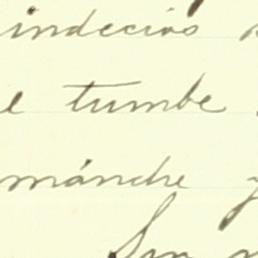 indecios
tumbe
mánche y
Sin